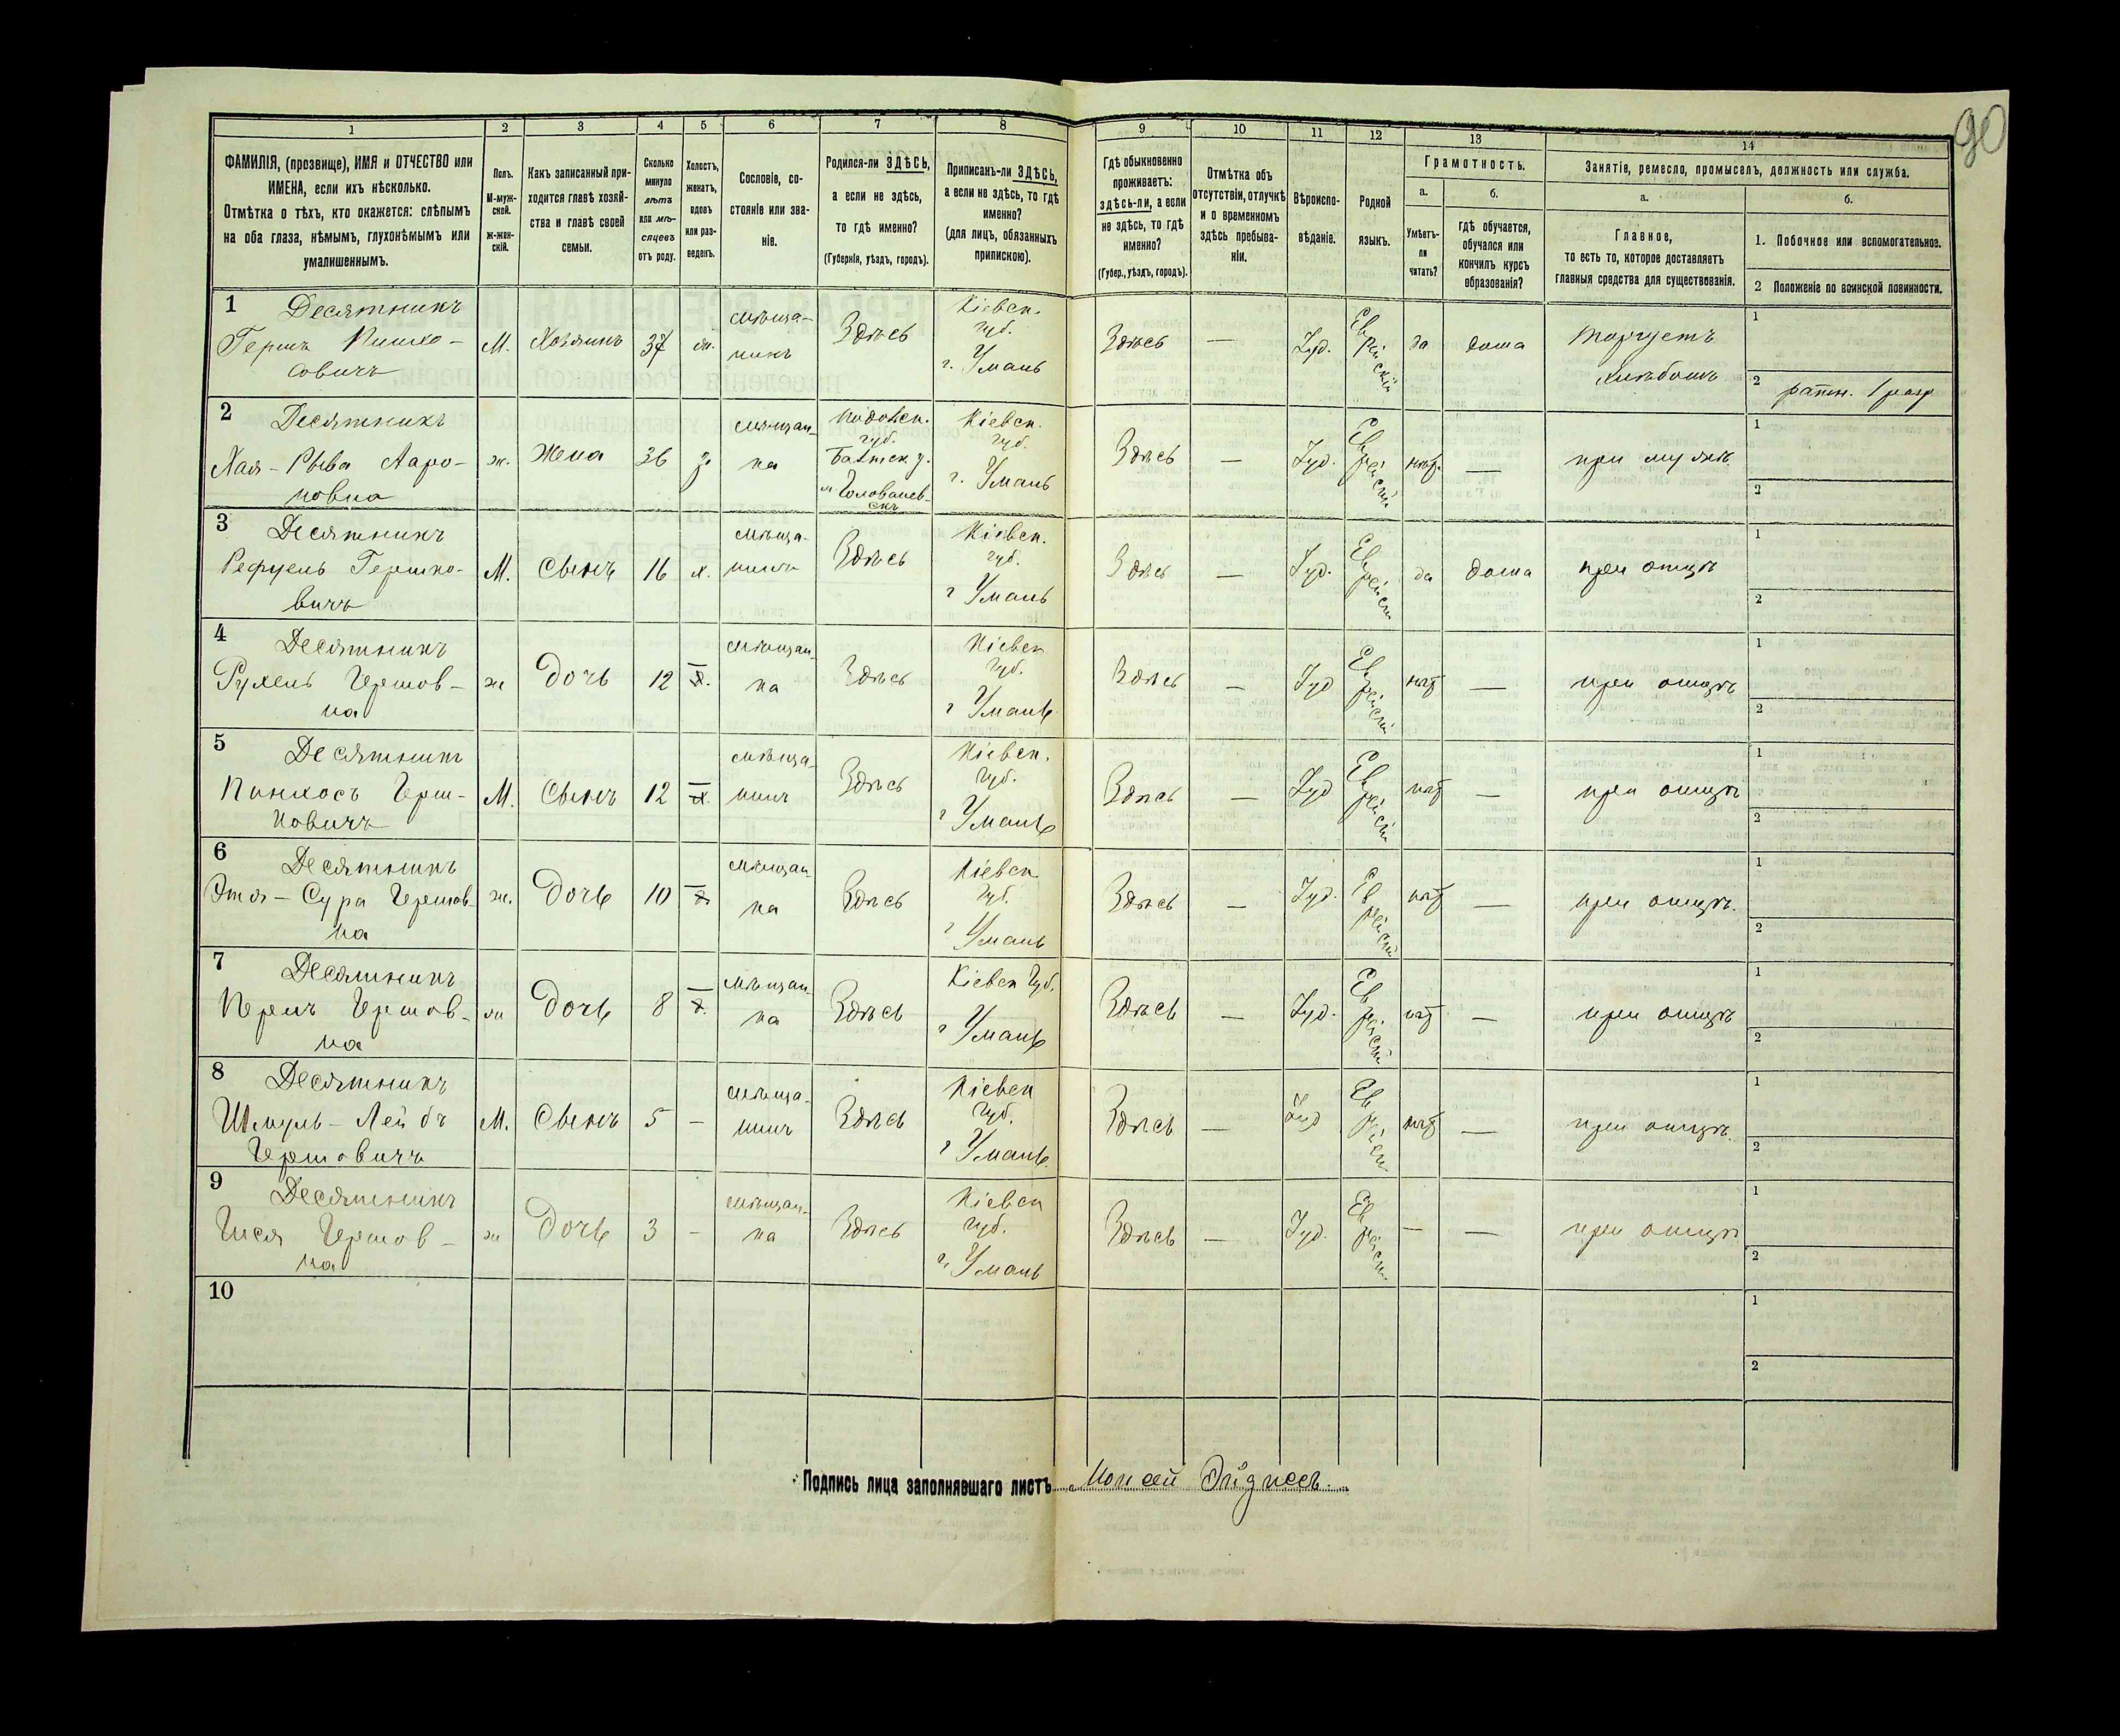 90
1 2 3 4 5 6 7 8 9 10 11 12 13 14
ФАМИЛІЯ, (прозвище), ИМЯ и ОТЧЕСТВО или
ИМЕНА, если ихъ нѣсколько.
Отмѣтка о тѣхъ, кто окажется: слѣпымъ
на оба глаза, нѣмымъ, глухонѣмымъ или
умалишеннымъ.
Полъ.
М-муж-
ской.
ж-жен-
скій.
Какъ записанный при-
ходится главѣ хозяй-
ства и главѣ своей
семьи.
Сколько
минуло
лѣтъ
или мѣ-
сяцевъ
отъ роду.
Холостъ,
женатъ,
вдовъ
или раз-
веденъ.
Сословіе, со-
стояніе или зва-
ніе.
Родился-ли ЗДѢСЬ,
а если не здѣсь,
то гдѣ именно?
(Губернія, уѣздъ, городъ).
Приписанъ-ли ЗДѢСЬ,
а если не здѣсь, то гдѣ
именно?
(для лицъ, обязанныхъ
припискою).
Гдѣ обыкновенно
проживаетъ:
здѣсь-ли, а если
не здѣсь, то гдѣ
именно?
(Губер., уѣздъ, городъ).
Отмѣтка объ
отсутствіи, отлучкѣ
и о временномъ
здѣсь пребыва-
ніи.
Вѣроиспо-
вѣданіе.
Родной
языкъ.
Грамотность.
а.
Умѣетъ-
ли
читать?
б.
гдѣ обучается,
обучался или
кончилъ курсъ
образованія?
Занятіе, ремесло, промыселъ, должность или служба.
а.
Главное,
то есть то, которое доставляетъ
главныя средства для существованія.
б.
1. Побочное или вспомогательное.
2 Положеніе по воинской повинности.
1 Десятникъ
Гершъ Пинхо-
совичъ
М.
Хозяинъ
37
жен.
мѣща-
нинъ
Здѣсь
Кіевск.
губ.
г. Умань
Здѣсь
—
Іуд.
Еврейскій
да
дома
торгуетъ
хлѣбомъ
1
2 ратн. 1 разр
2 Десятникъ
Хая-Рыва Ааро-
новна
ж.
Жена
36
з.
мѣщан-
ка
Подольск.
губ.
Балтск у.
м Голованев-
скъ
Кіевск.
губ.
г. Умань
Здѣсь
—
Іуд.
Еврейскій
нѣт.
—
при мужѣ
1
2
3 Десятникъ
Рефуель Гершко-
вичъ
М.
Сынъ
16
х.
мѣща-
нинъ
Здѣсь
Кіевск.
губ.
г Умань
Здѣсь
—
Іуд.
Еврейскі
да
дома
при отцѣ
1
2
4 Десятникъ
Рухель Гершов-
на
ж
Дочь
12
х.
мѣщан-
ка
Здѣсь
Кіевск
губ.
г Умань
Здѣсь
—
Іуд
Еврейскі
нѣт
—
при отцѣ
1
2
5 Десятникъ
Пинхосъ Герш-
ковичъ
М.
Сынъ
12
х.
мѣща-
нинъ
Здѣсь
Кіевск.
губ.
г Умань
Здѣсь
—
Іуд
Еврейскі
нѣт
—
при отцѣ
1
2
6 Десятникъ
Этя-Сура Гершов-
на
ж.
Дочь
10
х.
мѣщан-
ка
Здѣсь
Кіевск
губ.
г Умань
Здѣсь
—
Іуд.
Еврейскі
нѣт
—
при отцѣ.
1
2
7 Десятникъ
Перль Гершов-
на
ж
Дочь
8
х.
мѣщан-
ка
Здѣсь
Кіевск губ.
г Умань
Здѣсь
—
Іуд.
Еврейскі
нѣт
—
при отцѣ
1
2
8 Десятникъ
Шмуль-Лейбъ
Гершовичъ
М.
Сынъ
5
-
мѣща-
нинъ
Здѣсь
Кіевск
губ.
г Умань
Здѣсь
—
Іуд
Еврейск
нѣт
—
при отцѣ.
1
2
9 Десятникъ
Гися Гершов-
на
ж
Дочь
3
-
мѣщан-
ка
Здѣсь
Кіевск
губ.
г. Умань
Здѣсь
—
Іуд.
Еврейск.
—
—
при отцѣ
1
2
10
1
2
Подпись лица заполнявшаго листъ